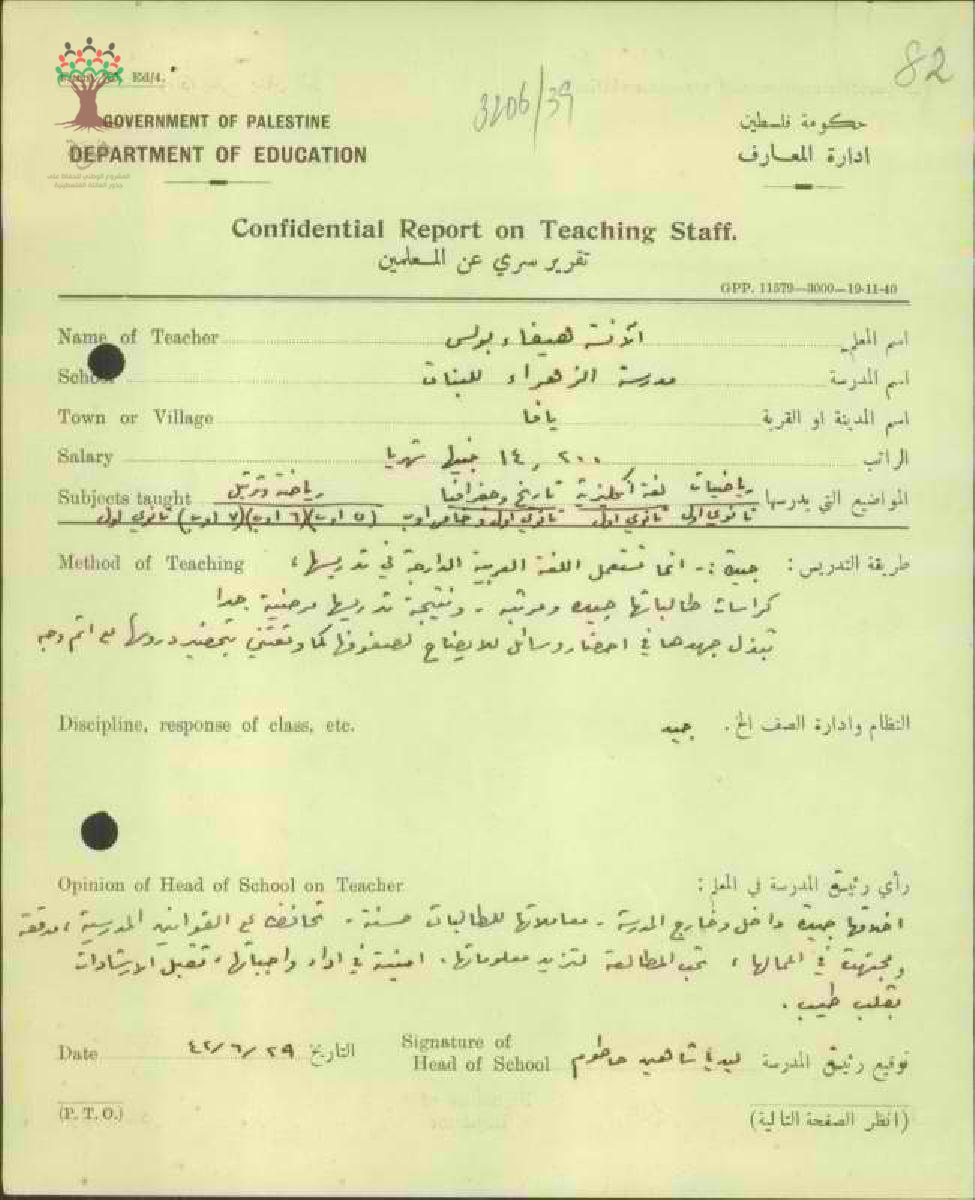 82
3206/39
Ed/4.
GOVERNMENT OF PALESTINE
حكومة فلسطين
DEPARTMENT OF EDUCATION
ادارة المعارف
المشروع الوطني للحفاظ على
جذور العائلة الفلسطينية
Confidential Report on Teaching Staff.
تقرير سري عن المعلمين
GPP. 11579—3000—19-11-40
Name of Teacher الآنسة هيفاء بولس اسم المعلم
School مدرسة الزهراء للبنات اسم المدرسة
Town or Village يافا اسم المدينة او القرية
Salary ١٤,٢٠٠ جنيه شهريا الراتب
Subjects taught رياضيات لغة انكليزية تاريخ وجغرافيا رياضة وترتيل المواضيع التي يدرسها
ثانوي اول ثانوي اول ثانوي اول و خامس أ وب (٥ أ وب)(٦ أ وب)(٧ أ وب) ثانوي اول
Method of Teaching طريقة التدريس : جيدة :- انما تستعمل اللغة العربية الدارجة في تدريسها ،
كراسات طالباتها جيده ومرتبه - ونتيجة تدريسها مرضية جدا
تبذل جهدها في احضار وسائل للايضاح لصفوفها كما وتعتني بتحضير دروسها على اتم وجه
Discipline, response of class, etc. النظام وادارة الصف الخ . جيد
Opinion of Head of School on Teacher رأي رئيسة المدرسة في المعلم :
اخلاقها جيدة داخل وخارج المدرسة - معاملاتها للطالبات حسنة - تحافظ على القوانين المدرسية ، مدققة
ومجتهدة في اعمالها ، تحب المطالعة لتزيد معلوماتها ، امينة في اداء واجباتها ، تقبل الارشادات
بقلب طيب .
Date ٤٢/٦/٢٩ التاريخ
Signature of
Head of School ليديا شاهين حاطوم توقيع رئيسة المدرسة
(P. T. O.) (انظر الصفحة التالية)